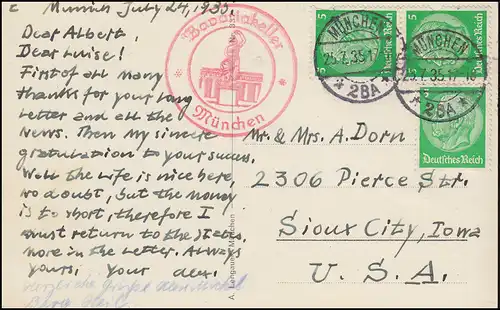 Munich July 24, 1935.
Dear Albert,
Dear Luise!
First of all many
thanks for your long
letter and all the
News. Then my sincert
gratulation to your succes.
Well the life is nice here,
no doubt, but the money
is to short, therefore I
must return to the States.
more in the letter. Always
yours, your alex.
Herzliche Grüße
Bavariakeller
München
A. Lengauer, München
5
5
Deutsches Reich
Deutsches Reich
Deutsches Reich
MÜNCHEN
25.7.35.17
* 2BA *
MÜNCHEN
.7.35.17-18
* 2BA *
Mr. & Mrs. A. Dorn
2306 Pierce Str.
Sioux City, Iowa
U. S. A.